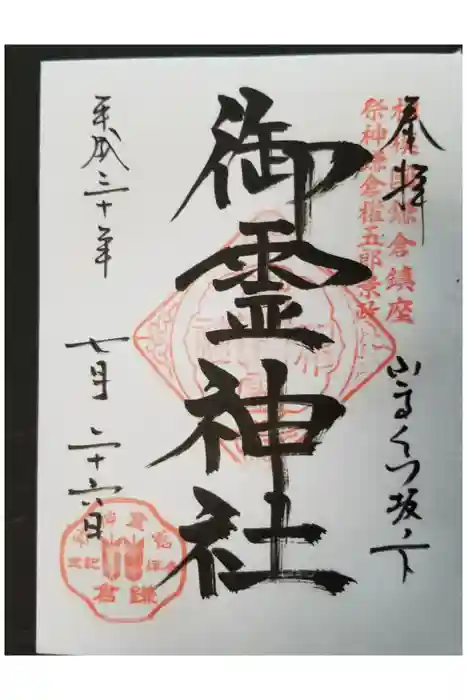 奉拝
相模国鎌倉鎮座
祭神鎌倉権五郎景政
かまくら坂ノ下
御霊神社
平成三十年
七月二十六日
鎌倉